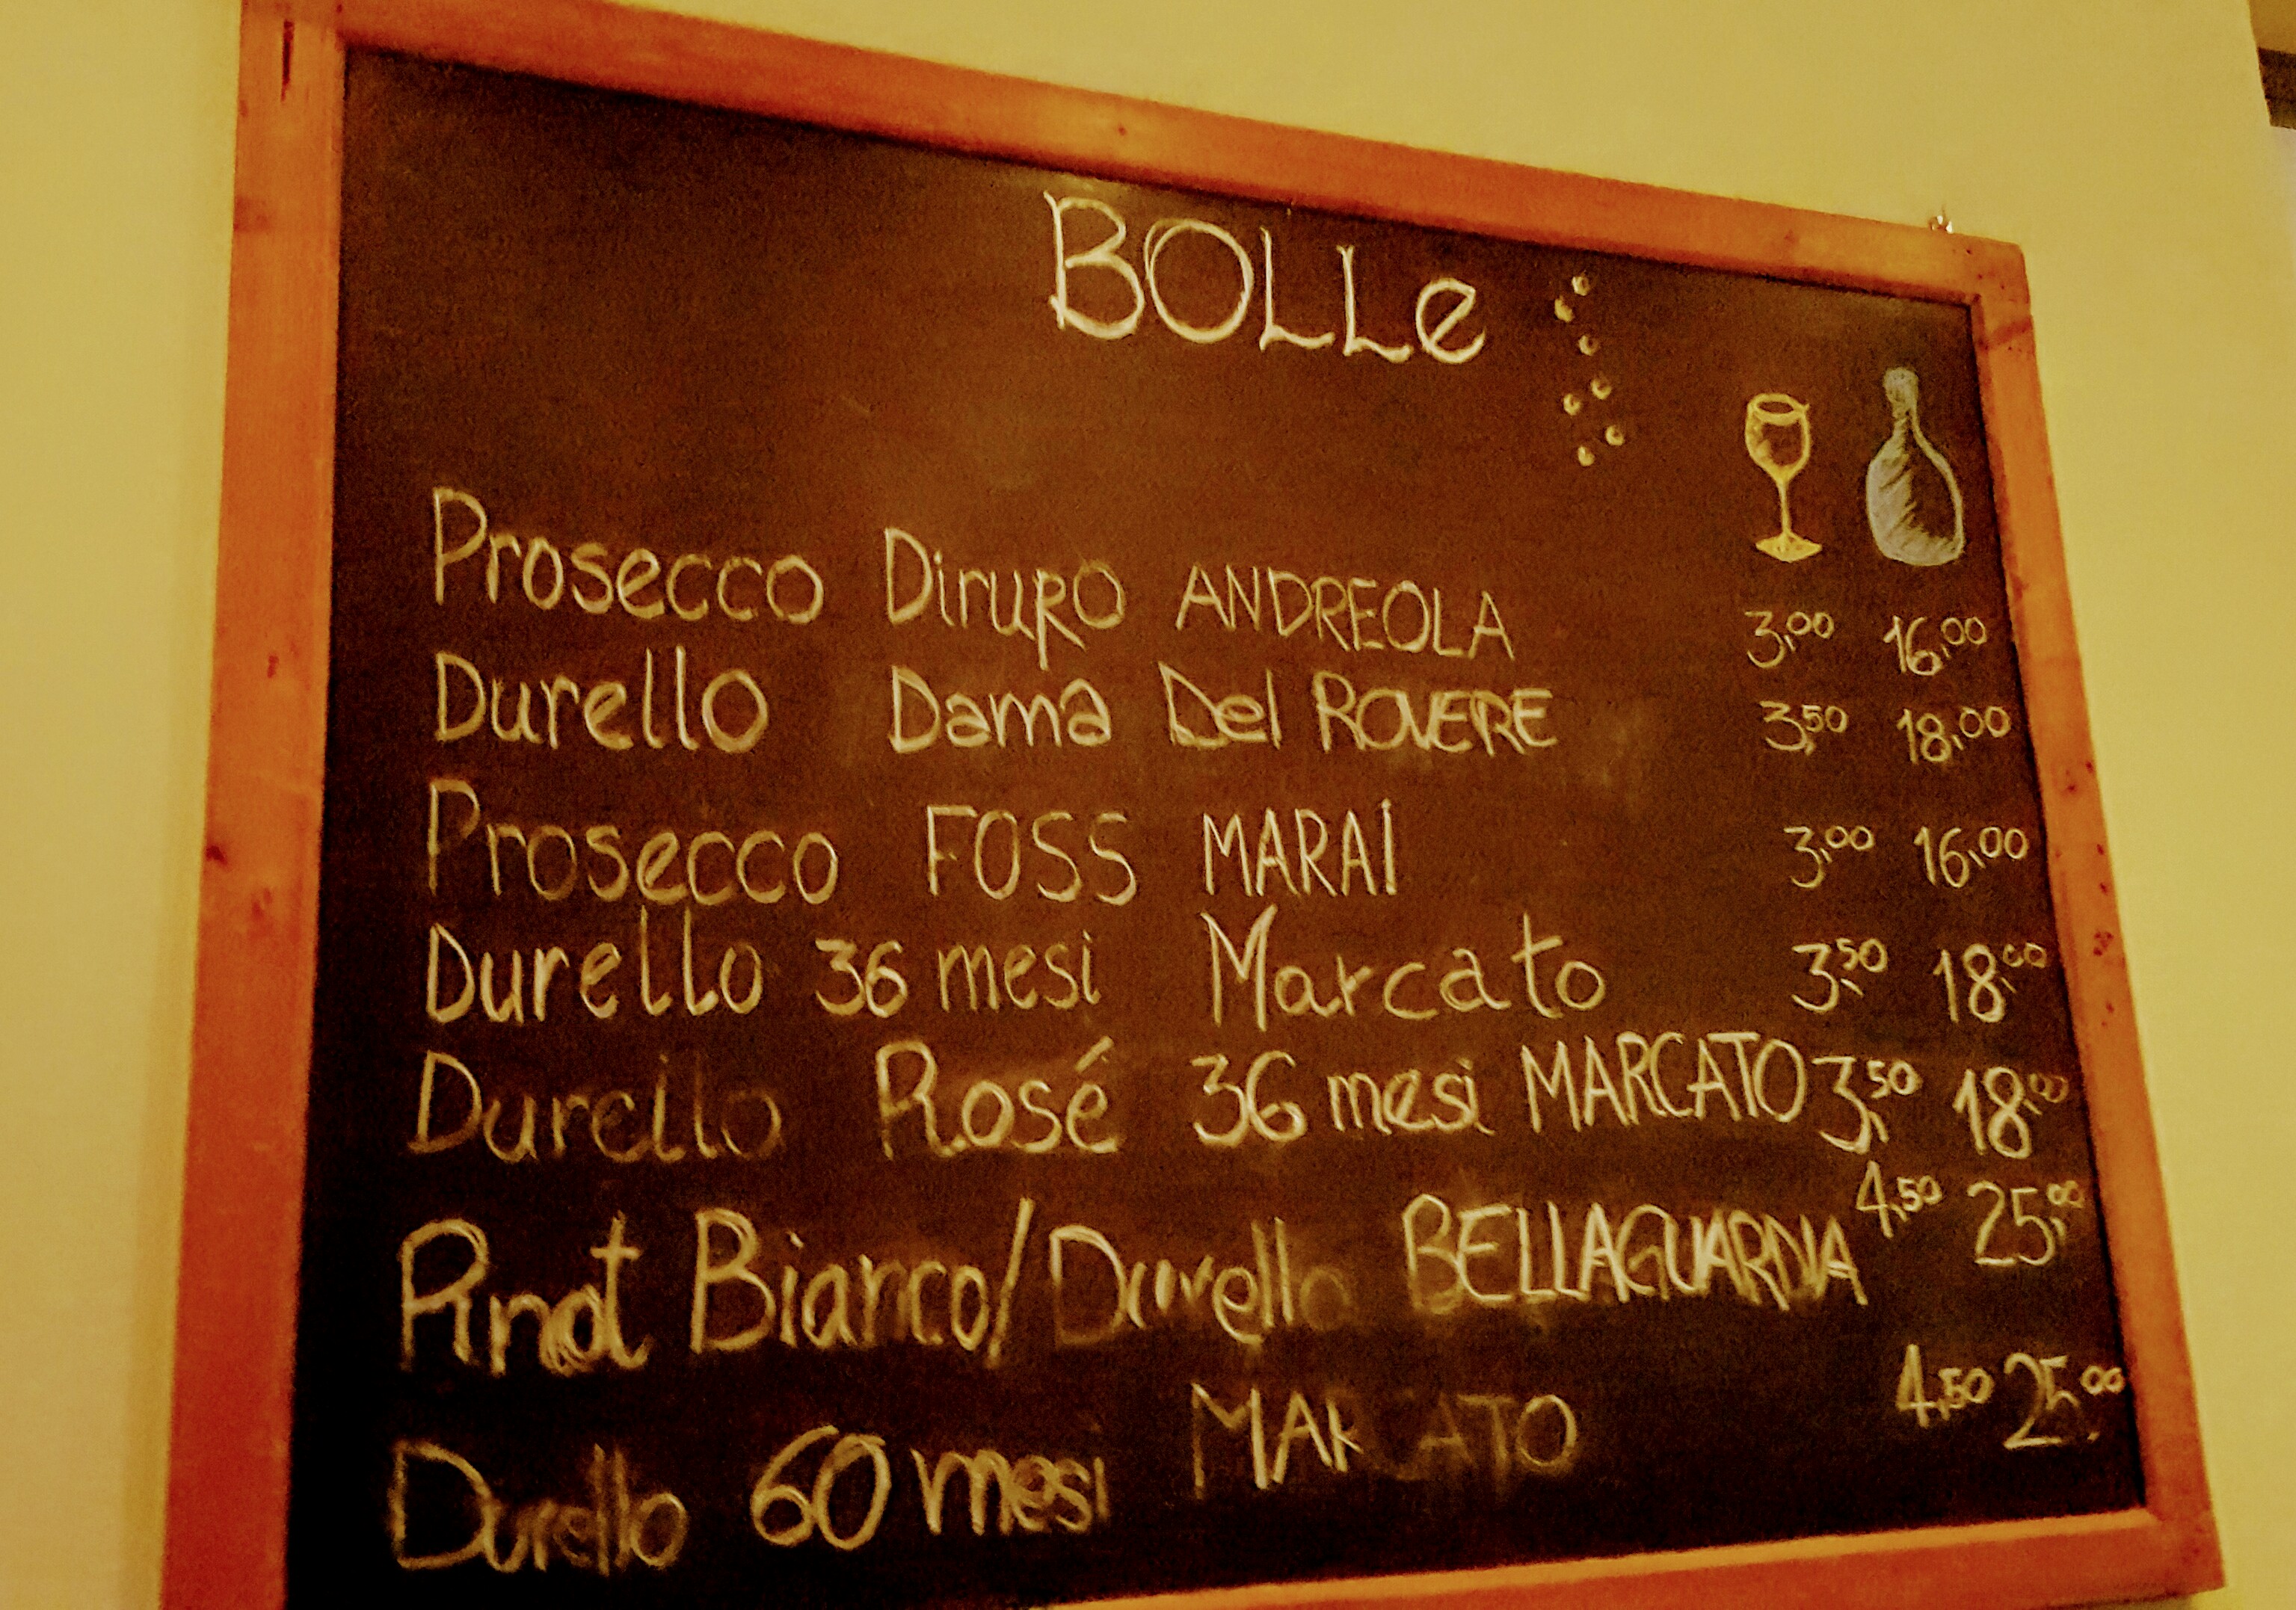 BOLLe
Prosecco Dirupo ANDREOLA 3,00 16,00
Durello Dama Del ROVERE 3,50 18,00
Prosecco FOSS MARAI 3,00 16,00
Durello 36 mesi Marcato 3,50 18,00
Durello Rosé 36 mesi MARCATO 3,50 18,00
Pinot Bianco/Durello BELLAGUARDIA 4,50 25,00
Durello 60 mesi MARCATO 4,50 25,00